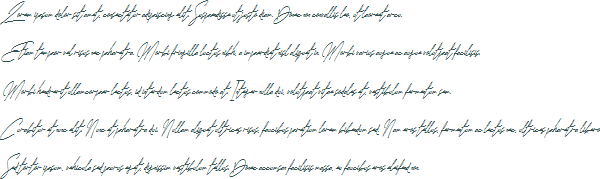 Lorem ipsum dolor sit amet, consectetur adipiscing elit. Suspendisse ut justo diam. Donec nec convallis leo, et laoreet arcu.
Etiam tempor vel risus nec pharetra. Morbi fringilla luctus nibh, a imperdiet nisl aliquet in. Morbi varius augue ac augue volutpat facilisis.
Morbi hendrerit ullamcorper lectus, id interdum lectus commodo at. Integer nulla dui, volutpat vitae sodales at, vestibulum fermentum sem.
Curabitur at nunc elit. Nunc at pharetra dui. Nullam aliquet ultrices risus, faucibus pretium lorem bibendum sed. Nam arcu tellus, fermentum ac lectus nec, ultrices pharetra libero.
Sed tortor ipsum, vehicula sed purus eget, dignissim vestibulum tellus. Donec accumsan facilisis massa, eu faucibus arcu eleifend eu.